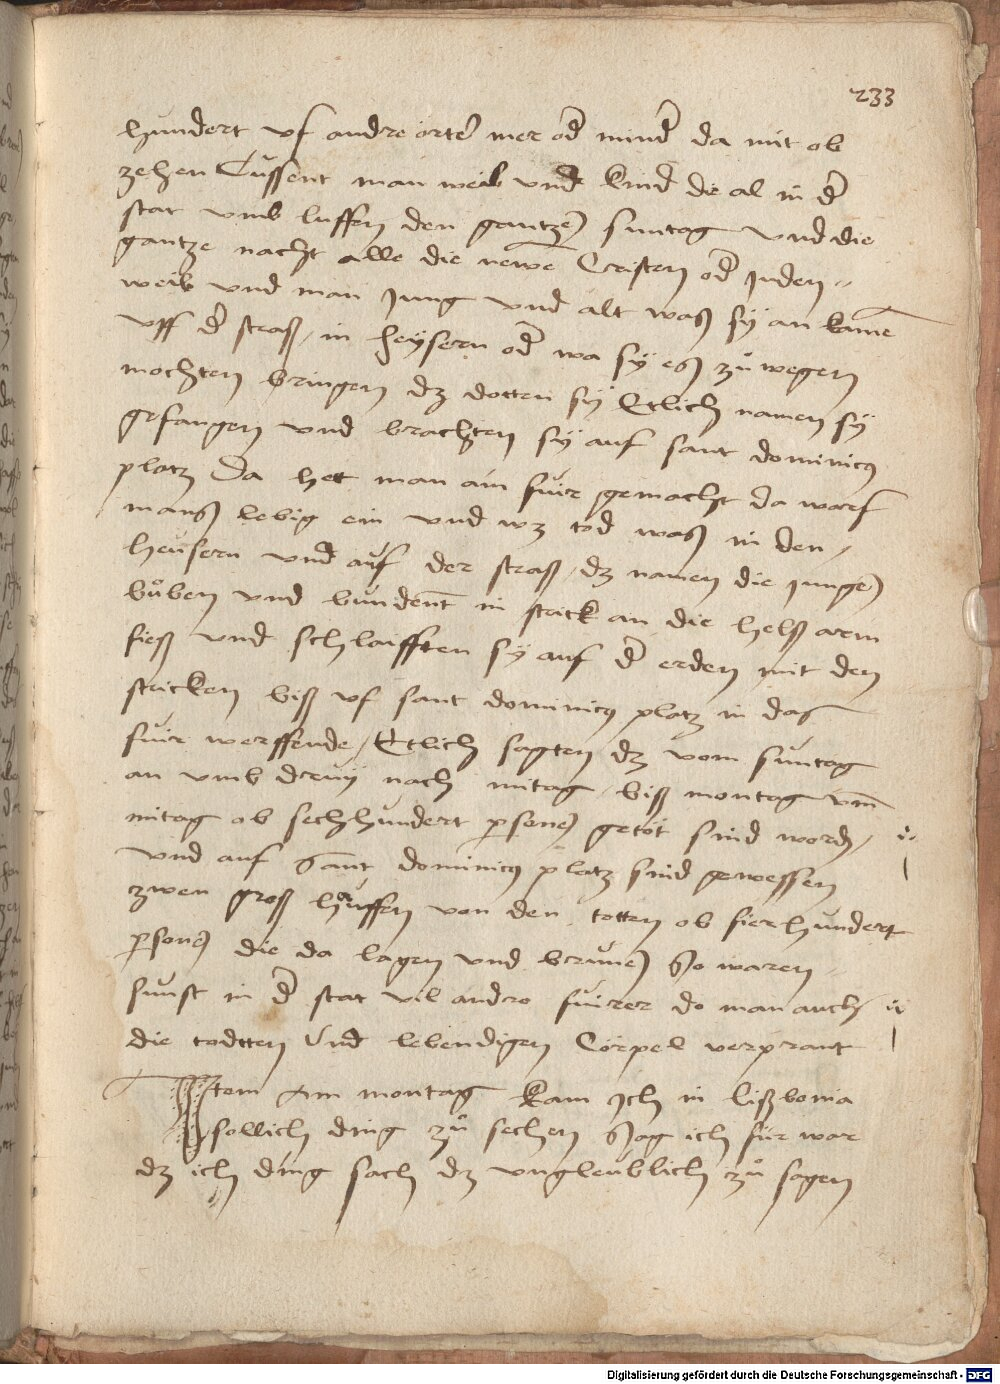 233
hundert vf andre örter mer od mind da mit ob
zehen Tussent man weib vnd kind die al in d
stat vmb luffen den gantzen suntag vnd die
gantze nacht alle die newe Cristen od Juden
weib vnd man Jung vnd alt was sy an kame
vff d straß / in heysern od wa sy es zů wegen
mochten bringen dz dotten sy Etlich namen sy
gefangen vnd brachten sy auf sant dominicus
platz Da het man ain fuir gemacht da warf
mans lebig ein vnd wz tod was in den /
heusern vnd auf der straß / dz namen die Jungen
bůben vnd bundent in strick an die helß arm
fieß vnd schlaifften sy auf d erden mit den
stricken biß vf sant dominicus platz in das
fuir werffende / Etlich sagten dz vom suntag
an vmb druy nach mitag / biß montag vm
mitag ob sechhundert psonen getöt sind word /
vnd auf Sant dominicus platz sind gewessen
zwen groß hauffen von den totten ob fierhundert
psonen die da lagen vnd brunen So waren
sunst in d stat vil andro fuirer do man auch
die todtten Vnd lebendigen Cörpel verprant
Item Am montag kam Ich in lißbona
sollich ding zů sechen Sag ich für war
dz ich ding sach dz vngleublich zů sagen
Digitalisierung gefördert durch die Deutsche Forschungsgemeinschaft - DFG